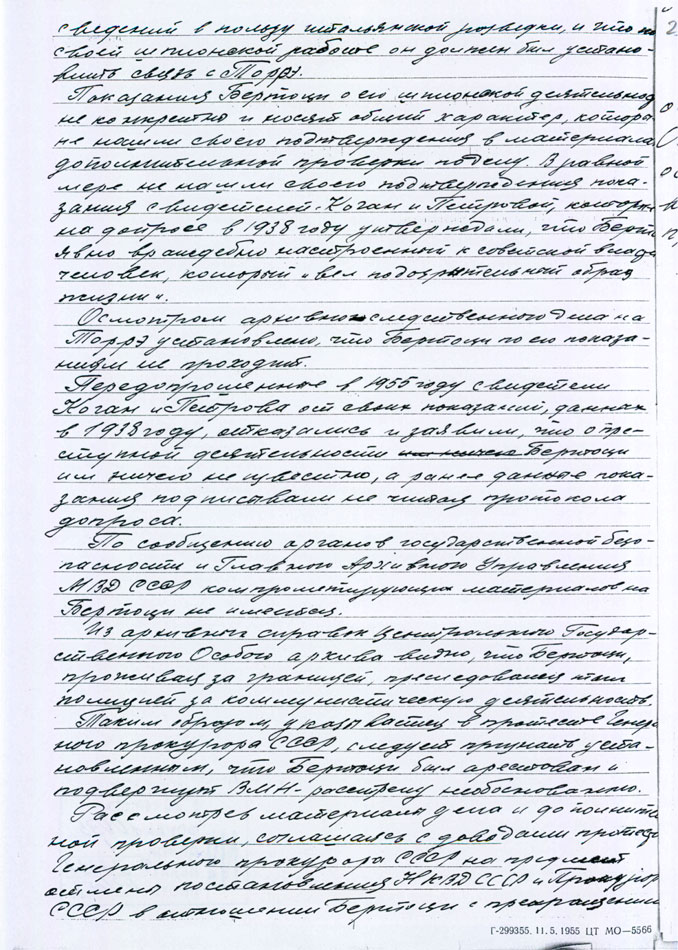 сведений в пользу итальянской разведки, и что по
своей шпионской работе он должен был устано-
вить связь с Торрэ.
Показания Бертоци о его шпионской деятельнос
не конкретно и носят общий характер, котора
не нашли своего подтверждения в материала
дополнительной проверки по делу. В равной
мере не нашли своего подтверждения пока-
зания свидетелей Коган и Петровой, которые
на допросе в 1938 году утверждали, что Берто
явно враждебно настроенный к советской влас
человек, который "вел подозрительный образ
жизни".
Осмотром архивно-следственного дела на
Торрэ установлено, что Бертоци по его показа-
ниям не проходит.
Передопрошенные в 1955 году свидетели
Коган и Петрова от своих показаний, данных
в 1938 году, отказались и заявили, что о пре-
ступной деятельности Бертоци
им ничего не известно, а ранее данные пока-
зания подписывали не читая протокола
допроса.
По сообщению органов государственной безо-
пасности и Главного Архивного Управления
МВД СССР компрометирующих материалов на
Бертоци не имеется.
Из архивных справок Центрального Государ-
ственного Особого архива видно, что Бертоци,
проживая за границей, преследовался
полицией за коммунистическую деятельность.
Таким образом, указывается в протесте Генера
ного прокурора СССР, следует признать уста-
новленным, что Бертоци был арестован и
подвергнут ВМН - расстрелу необоснованно.
Рассмотрев материалы дела и дополнител
ной проверки, соглашаясь с доводами протеста
Генерального прокурора СССР на предмет
отмены постановления НКВД СССР и Прокурор
СССР в отношении Бертоци с прекращением
Г-299355. 11.5.1955 ЦТ МО—5566
2